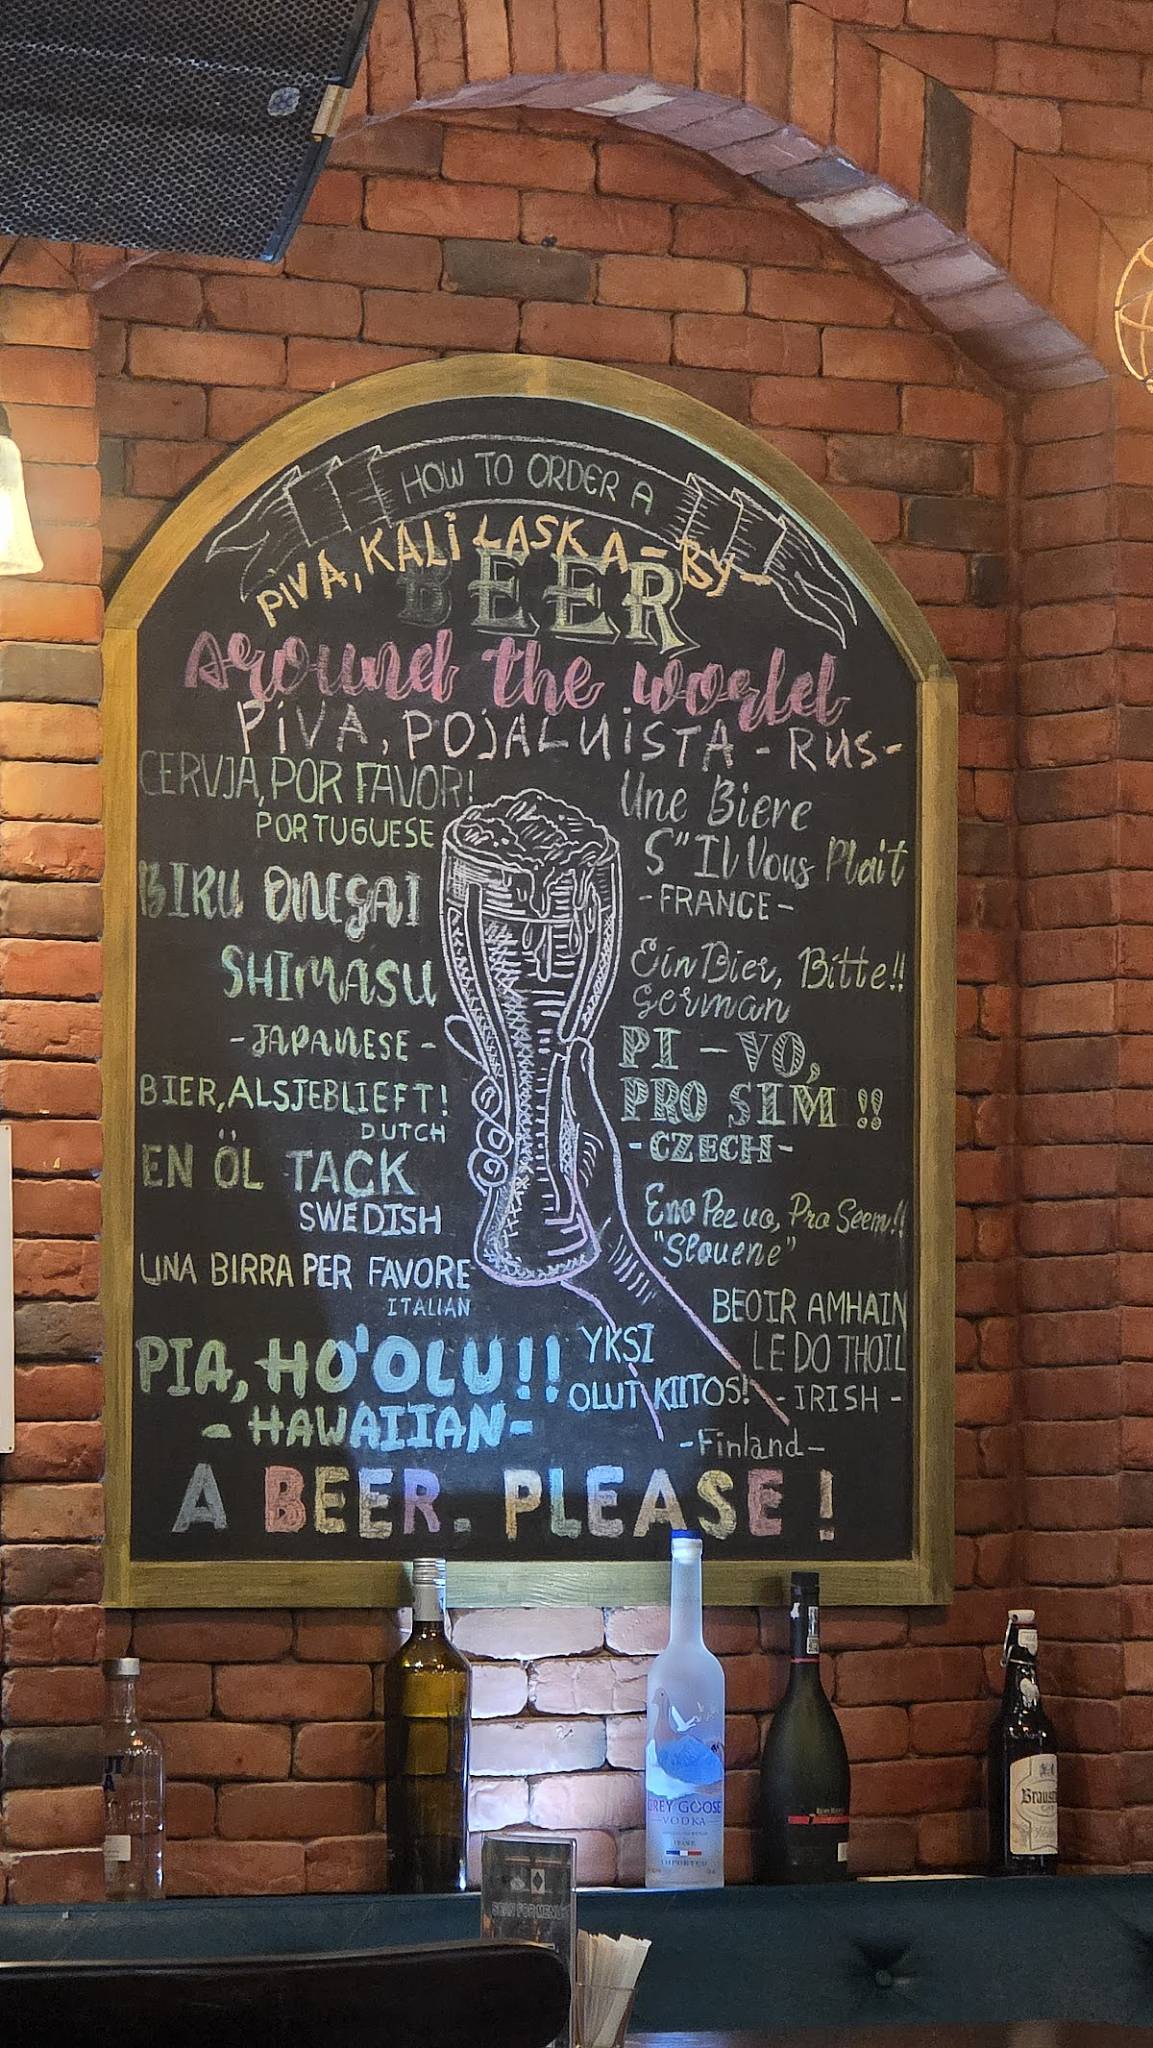 HOW TO ORDER A
PIVA, KALI LASKA - BY -
BEER
around the world
PIVA, POJALUISTA - RUS -
CERVJA, POR FAVOR!
PORTUGUESE
BIRU ONEGAI
SHIMASU
- JAPANESE -
BIER, ALSJEBLIEFT!
DUTCH
EN ÖL TACK
SWEDISH
UNA BIRRA PER FAVORE
ITALIAN
PIA, HO'OLU!!
- HAWAIIAN -
Une Biere
S"Il Vous Plait
- FRANCE -
Ein Bier, Bitte!!
German
PI - VO,
PRO SIM !!
- CZECH -
Eno Pee vo, Pro Seem!!
"Slovene"
BEOIR AMHAIN
LE DO THOIL
- IRISH -
YKSI
OLUT KIITOS!
- Finland -
A BEER. PLEASE !
GREY GOOSE
VODKA
IMPORTED
SCAN FOR MENU